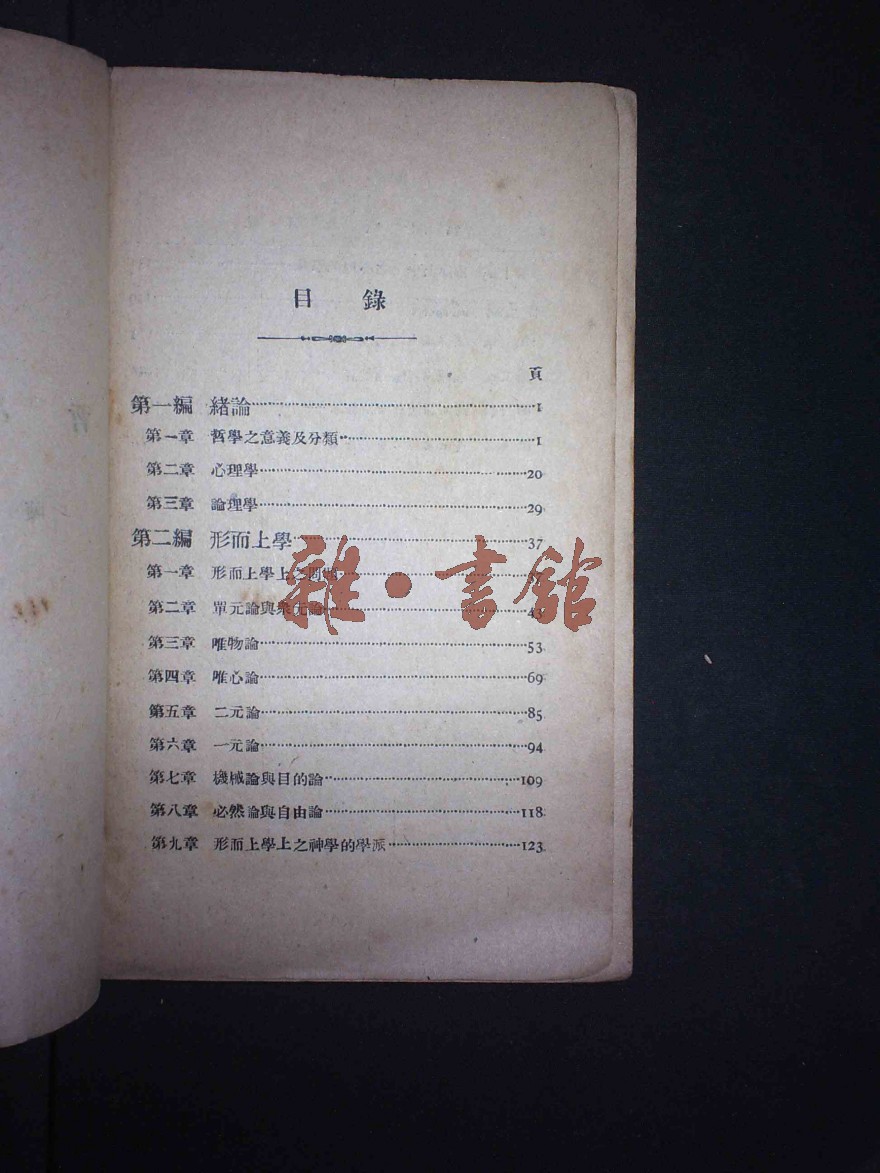 目錄
頁
第一編 緒論……1
第一章 哲學之意義及分類……1
第二章 心理學……20
第三章 論理學……29
第二編 形而上學……37
第一章 形而上學上之問題
雜·書館
第二章 單元論與衆元論……43
第三章 唯物論……53
第四章 唯心論……69
第五章 二元論……85
第六章 一元論……94
第七章 機械論與目的論……109
第八章 必然論與自由論……118
第九章 形而上學上之神學的學派……123